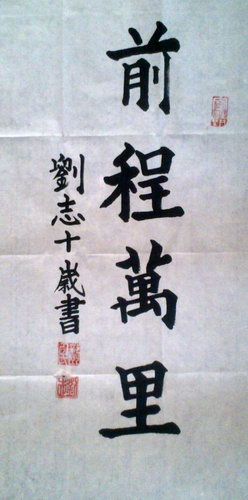 前程萬里
劉志十歲書